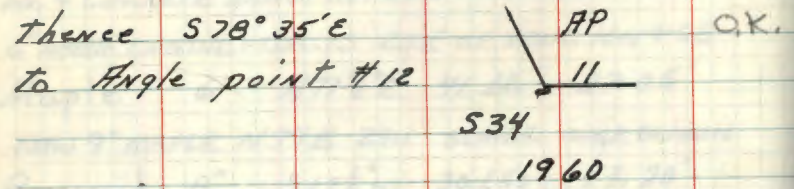 thence S78°35'E
to Angle point #12
AP
11
S34
1960
O.K.